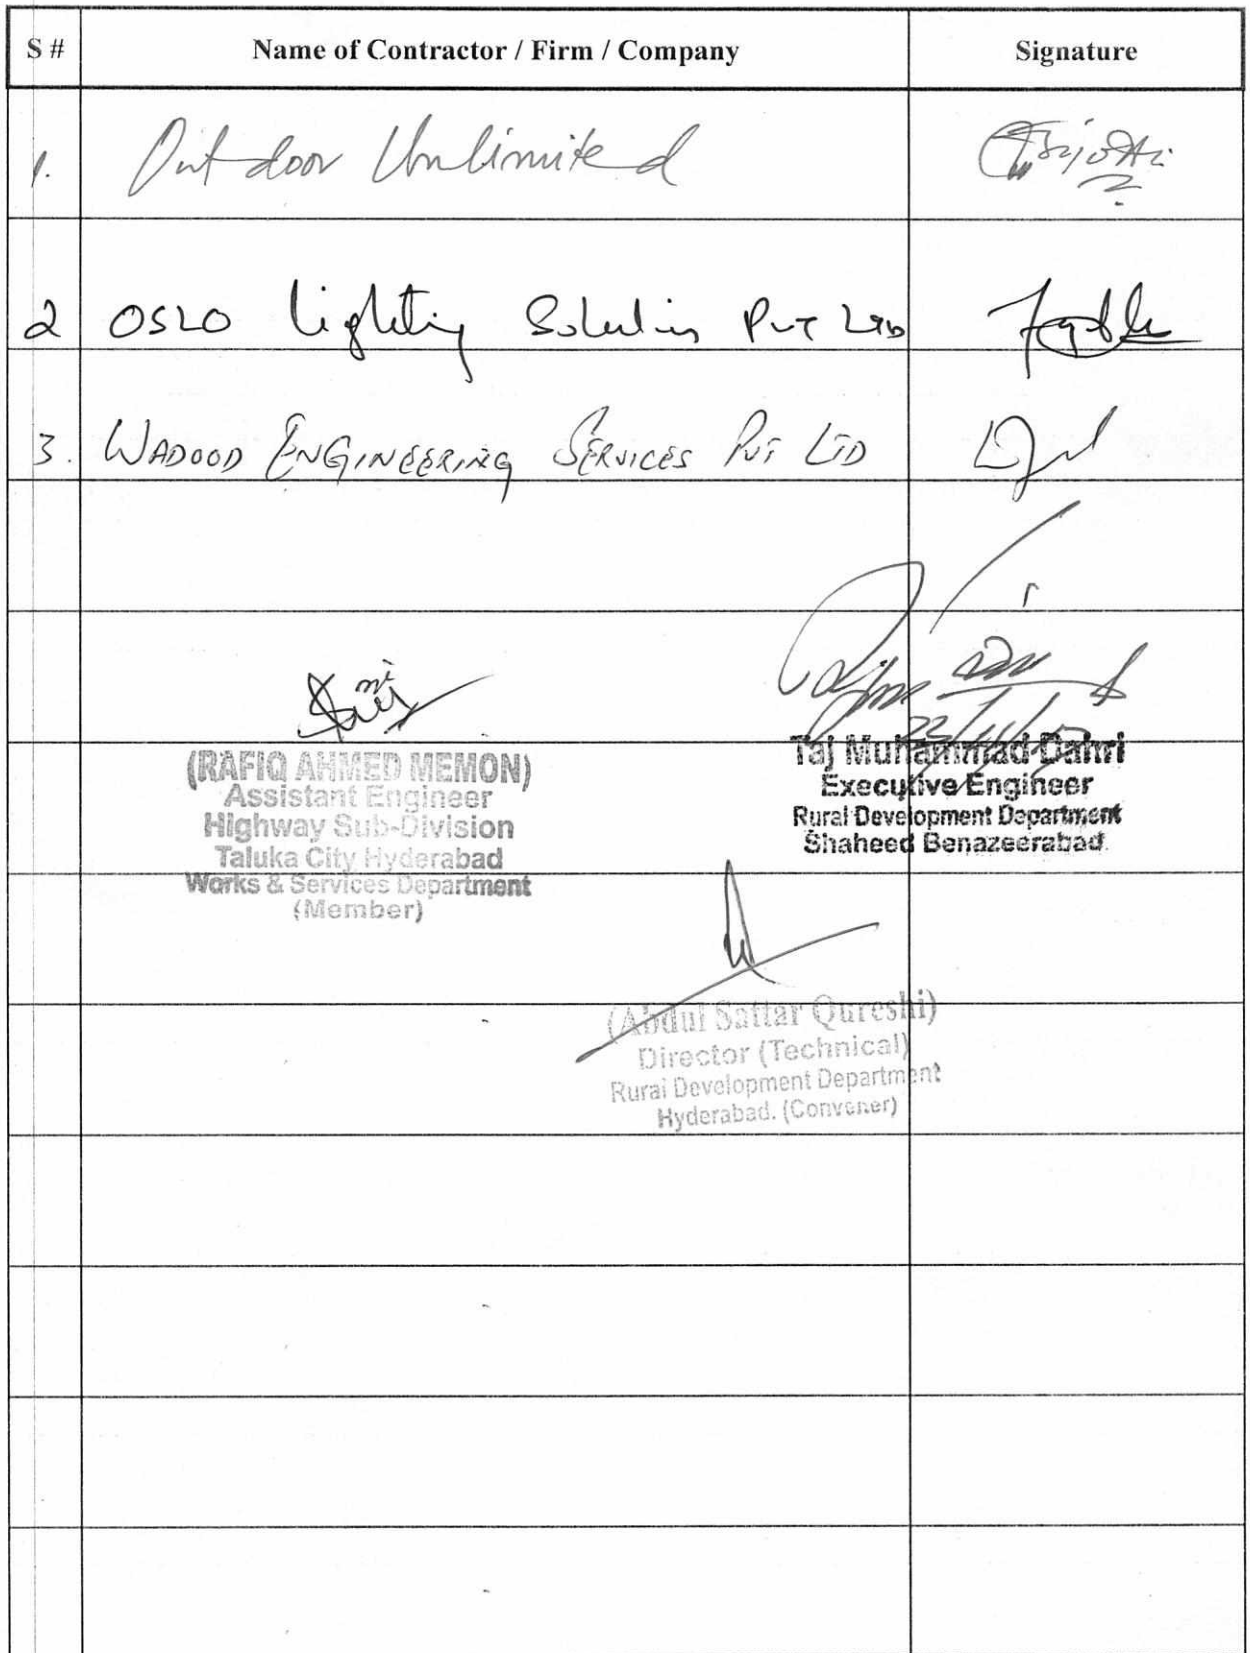 S # Name of Contractor / Firm / Company Signature
1. Outdoor Unlimited
2 OSLO Lighting Solutions Pvt Ltd
3. WADOOD ENGINEERING SERVICES Pvt LTD
(RAFIQ AHMED MEMON)
Assistant Engineer
Highway Sub-Division
Taluka City Hyderabad
Works & Services Department
(Member)
Taj Muhammad Dahri
Executive Engineer
Rural Development Department
Shaheed Benazeerabad
(Abdul Sattar Qureshi)
Director (Technical)
Rural Development Department
Hyderabad. (Convener)